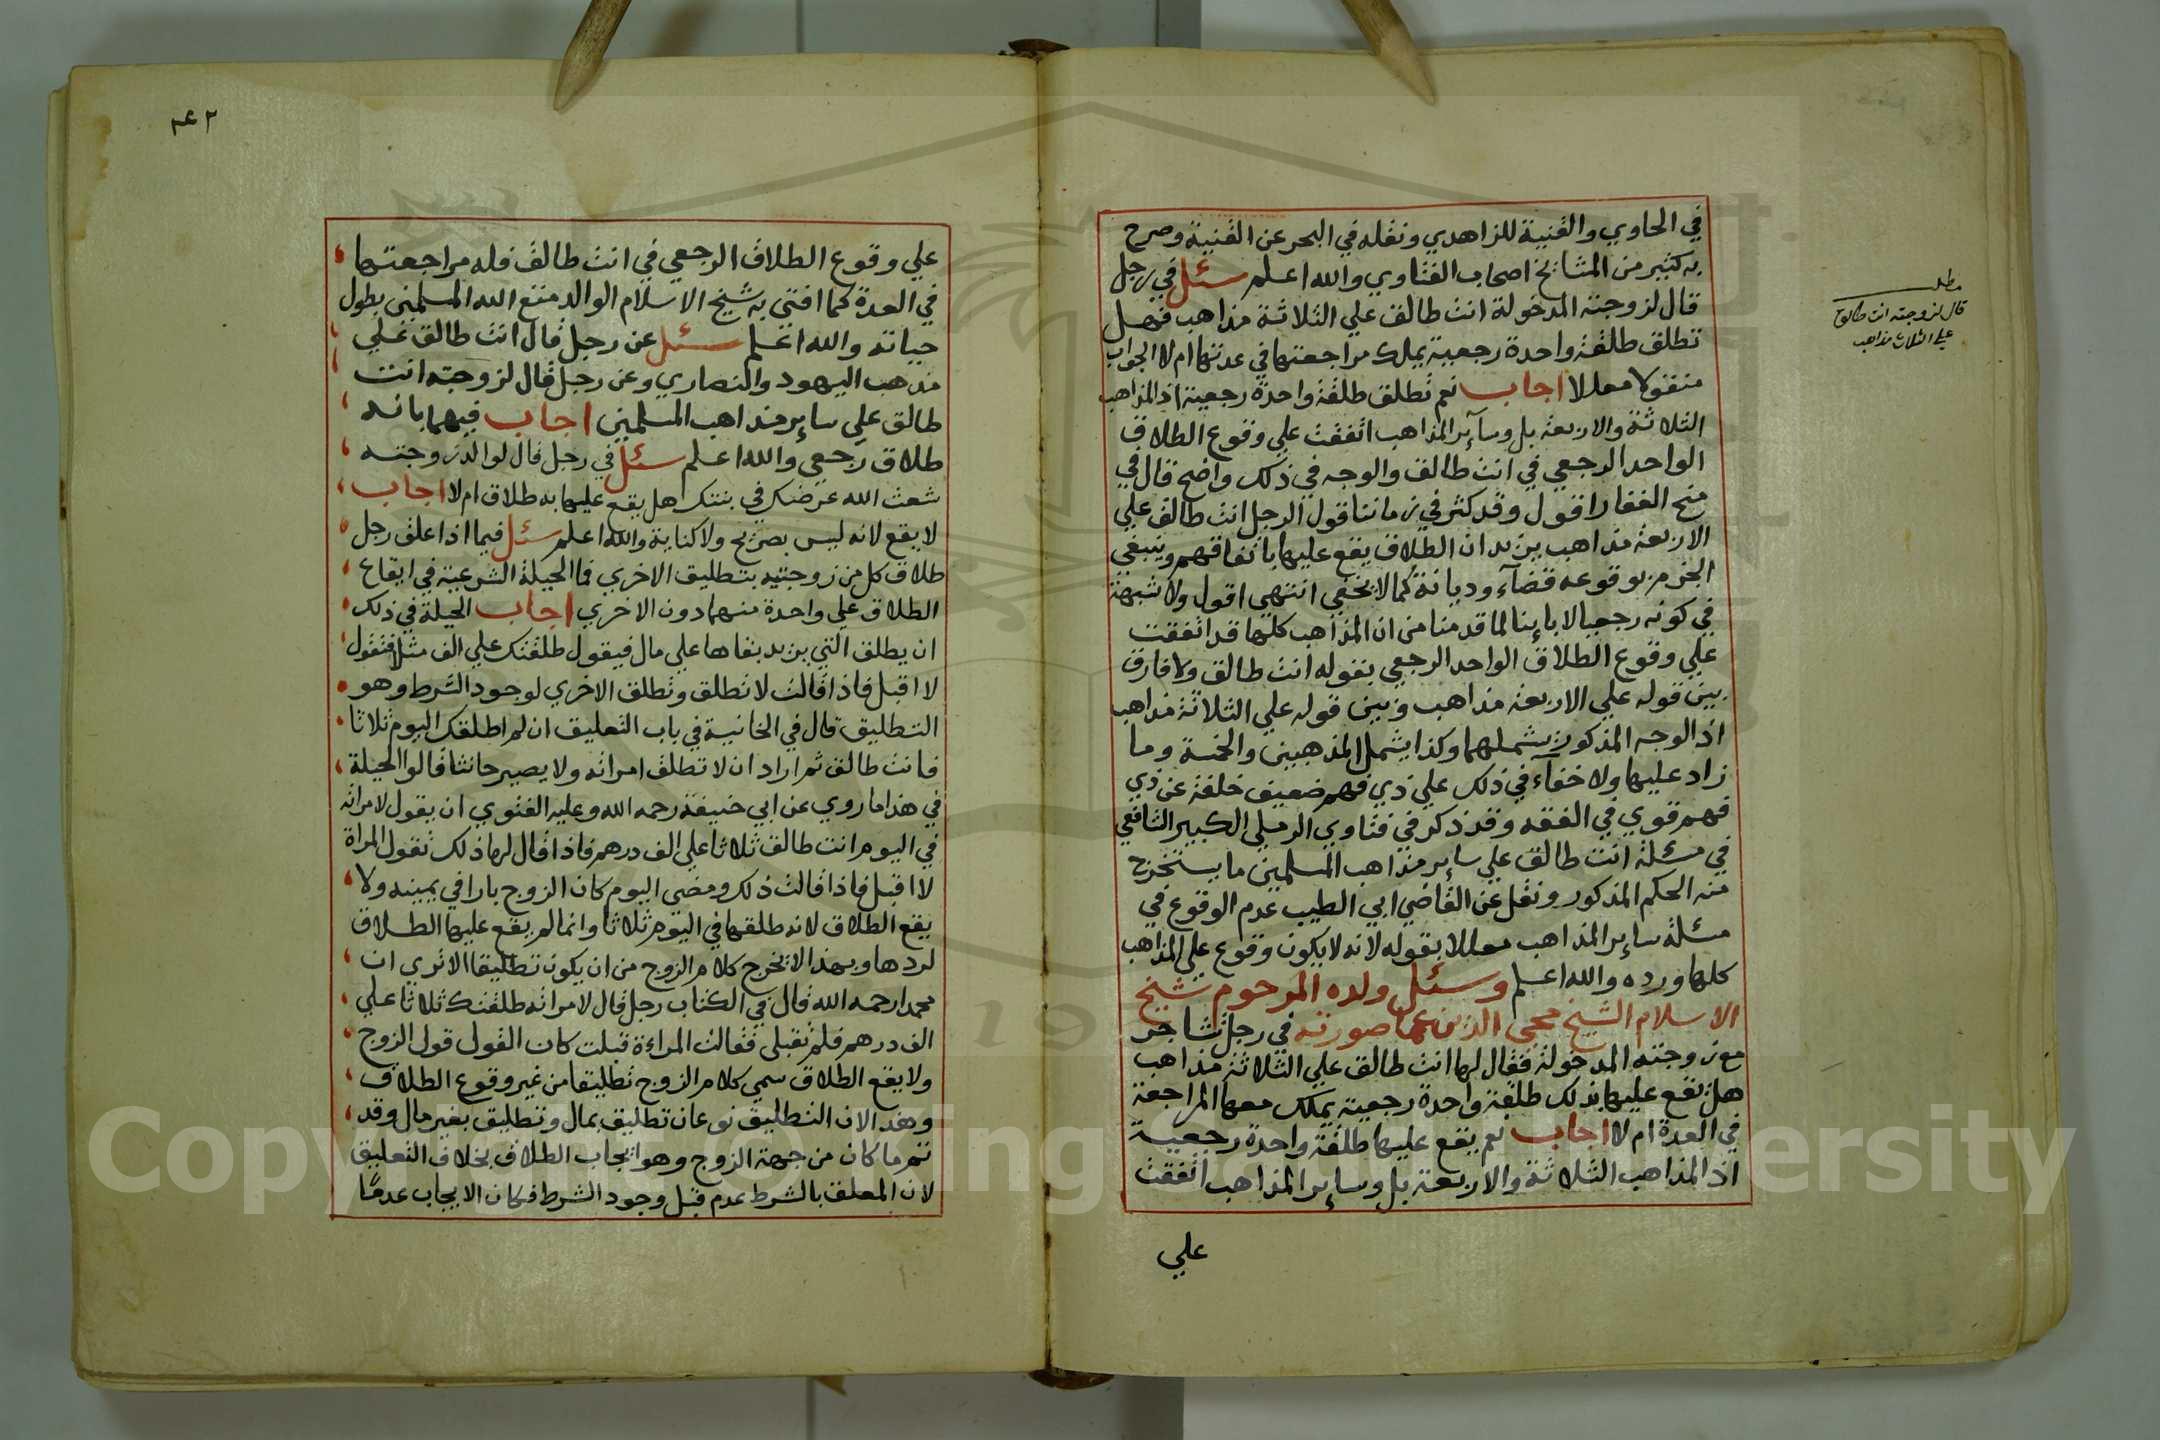 في الحاوي والقنية للزاهدي ونقله في البحر عن القنية وصرح
به كثير من المشايخ اصحاب الفتاوي والله اعلم سئل في رجل
قال لزوجته المدخولة انت طالق علي الثلاثة مذاهب فهل
تطلق طلقة واحدة رجعية يملك مراجعتها في عدتها ام لا الجواب
منقولا معللا اجاب نعم تطلق طلقة واحدة رجعية اذ المذاهب
الثلاثة والاربعة بل وسآير المذاهب اتفقت علي وقوع الطلاق
الواحد الرجعي في انت طالق والوجه في ذلك واضح قال في
منح الغفار اقول وقد كثر في زماننا قول الرجل انت طالق علي
الاربعة مذاهب يريد ان الطلاق يقع عليها باتفاقهم وينبغي
الجزم بوقوعه قضآء وديانة كما لا يخفي انتهي اقول ولا شبهة
في كونه رجعيا لا باينا لما قدمنا من ان المذاهب كلها قد اتفقت
علي وقوع الطلاق الواحد الرجعي بقوله انت طالق ولا فارق
بين قوله علي الاربعة مذاهب وبين قوله علي الثلاثة مذاهب
اذ الوجه المذكور يشملهما وكذا يشمل المذهبين والخمسة وما
زاد عليها ولا خفآء في ذلك علي ذي فهم ضعيف خلقة عن ذي
فهم قوي في الفقه وقد ذكر في فتاوي الرملي الكبير الشافعي
في مسئلة انت طالق علي ساير مذاهب المسلمين ما يستخرج
منه الحكم المذكور ونقل عن القاضي ابي الطيب عدم الوقوع في
مسئلة ساير المذاهب معللا بقوله لانه لا يكون وقوع علي المذاهب
كلها ورده والله اعلم وسئل ولده المرحوم شيخ
الاسلام الشيخ محيي الدين عما صورته في رجل تشاجر
مع زوجته المدخولة فقال لها انت طالق علي الثلاثة مذاهب
هل يقع عليها بذلك طلقة واحدة رجعية يملك معها المراجعة
في العدة ام لا اجاب نعم يقع عليها طلقة واحدة رجعية
اذ المذاهب الثلاثة والاربعة بل وساير المذاهب اتفقت
علي
مطلب
قال لزوجته انت طالق
علي الثلاث مذاهب
٢٤٢
علي وقوع الطلاق الرجعي في انت طالق فله مراجعتها
في العدة كما افتي به شيخ الاسلام الوالد متع الله المسلمين بطول
حياته والله اعلم سئل عن رجل قال انت طالق علي
مذهب اليهود والنصاري وعن رجل قال لزوجته انت
طالق علي ساير مذاهب المسلمين اجاب فيهما بانه
طلاق رجعي والله اعلم سئل في رجل قال لوالد زوجته
شعث الله عرضك في بنتك هل يقع عليها به طلاق ام لا اجاب
لا يقع لانه ليس بصريح ولا كناية والله اعلم سئل فيما اذا علق رجل
طلاق كل من زوجتيه بتطليق الاخري فما الحيلة الشرعية في ايقاع
الطلاق علي واحدة منهما دون الاخري اجاب الحيلة في ذلك
ان يطلق التي يريد بقاها علي مال فيقول طلقتك علي الف مثلا فتقول
لا اقبل فاذا قالت لا تطلق وتطلق الاخري لوجود الشرط وهو
التطليق قال في الخانية في باب التعليق ان لم اطلقك اليوم ثلاثا
فانت طالق ثم اراد ان لا تطلق امراته ولا يصير حانثا قالوا الحيلة
في هذا ما روي عن ابي حنيفة رحمه الله وعليه الفتوي ان يقول لامراته
في اليوم انت طالق ثلاثا علي الف درهم فاذا قال لها ذلك تقول المراة
لا اقبل فاذا قالت ذلك ومضي اليوم كان الزوج بارا في يمينه ولا
يقع الطلاق لانه طلقها في اليوم ثلاثا وانما لم يقع عليها الطلاق
لردها وبهذا لا يخرج كلام الزوج من ان يكون تطليقا الا تري ان
محمدا رحمه الله قال في الكتاب رجل قال لامراته طلقتك ثلاثا علي
الف درهم فلم تقبلي فقالت المراءة قبلت كان القول قول الزوج
ولا يقع الطلاق سمي كلام الزوج تطليقا من غير وقوع الطلاق
وهذا لان التطليق نوعان تطليق بمال وتطليق بغير مال وقد
تم ما كان من جهة الزوج وهو ايجاب الطلاق بخلاف التعليق
لان المعلق بالشرط عدم قبل وجود الشرط فكان الايجاب عدما
Copyright © King Saud University